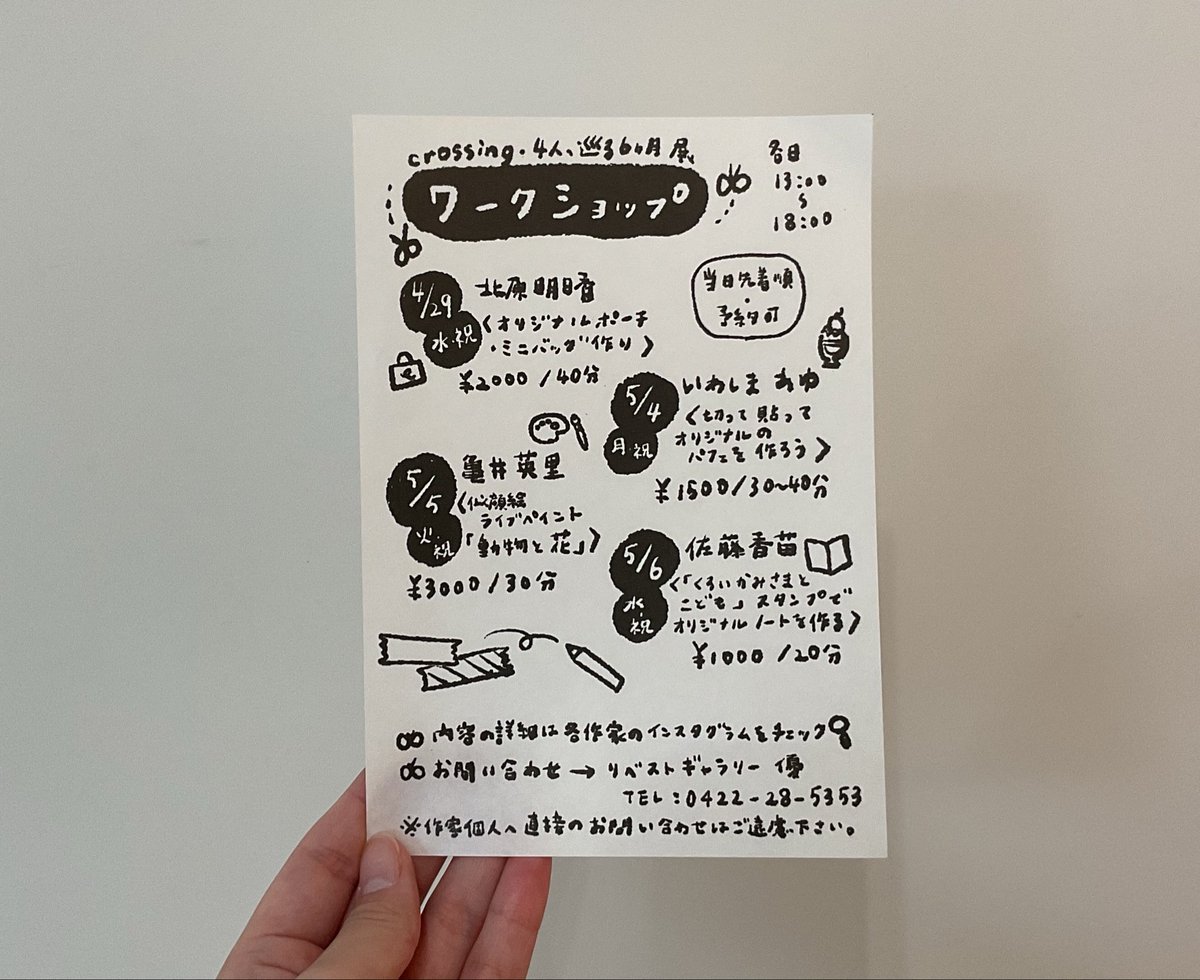 crossing・4人、巡る6ヶ月展
ワークショップ
各日
13:00
〜
18:00
4/29
水・祝
北原明日香
〈オリジナルポーチ
・ミニバッグ作り〉
¥2000/40分
当日先着順
・
予約可
5/4
月・祝
いわしま あゆ
〈切って貼って
オリジナルの
パフェを作ろう〉
¥1500/30〜40分
5/5
火・祝
亀井英里
〈似顔絵
ライブペイント
「動物と花」〉
¥3000/30分
5/6
水・祝
佐藤香苗
〈「くろいかみさまと
こども」スタンプで
オリジナルノートを作る〉
¥1000/20分
内容の詳細は各作家のインスタグラムをチェック
お問い合わせ→リベストギャラリー 優
TEL:0422-28-5353
※作家個人へ直接のお問い合わせはご遠慮下さい。